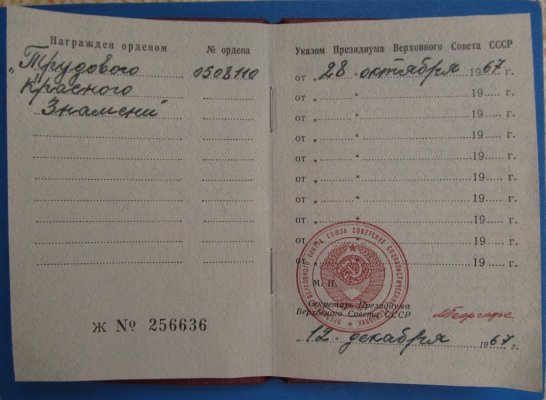 Награжден орденом
№ ордена
„Трудового
Красного
Знамени"
0508110
Ж № 256636
Указом Президиума Верховного Совета СССР
от „28" октября 1967 г.
от „ " 19 г.
от „ " 19 г.
от „ " 19 г.
от „ " 19 г.
от „ " 19 г.
от „ " 19 г.
от „ " 19 г.
от „ " 19 г.
от „ " 19 г.
М. П.
Секретарь Президиума
Верховного Совета СССР
„12" декабря 1967 г.